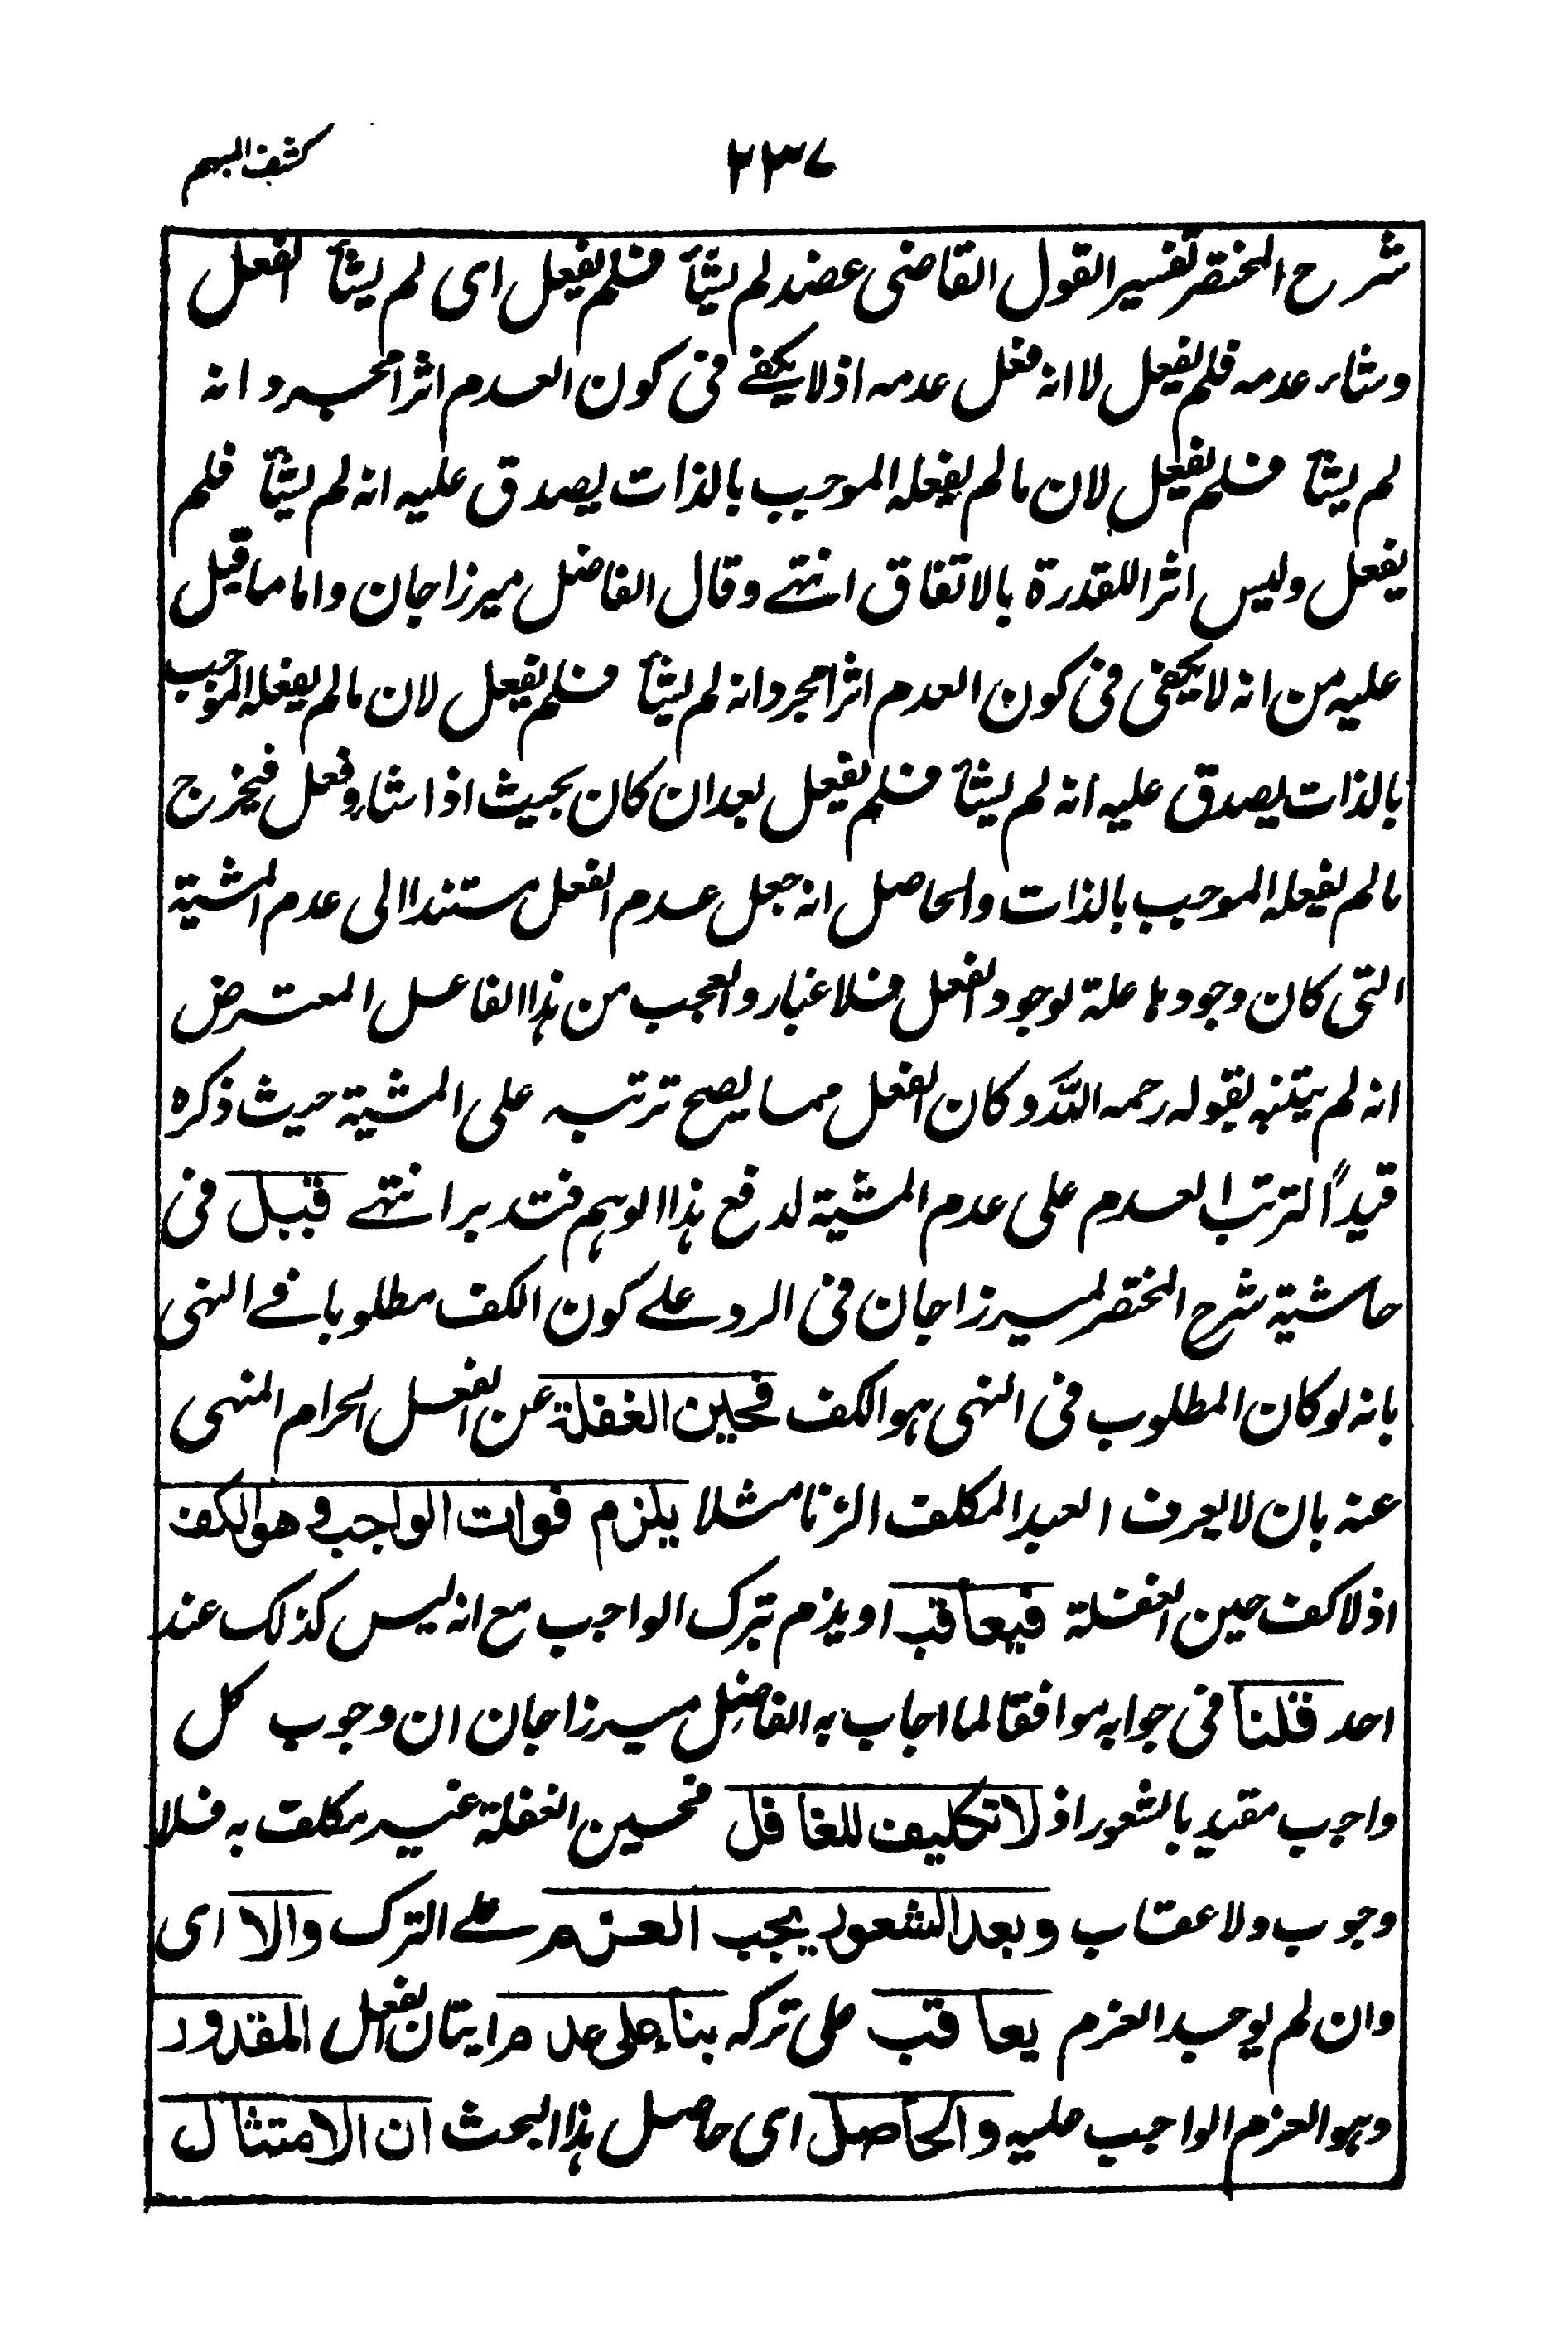 كشف المبهم
٢٣٧
شرح المختصر تفسير القول القاضى عضد لم يشأ فلم يفعل اى لم يشأ الفعل
وشاء عدمه فلم يفعل لا انه فعل عدمه اذ لا يكفے فى كون العدم اثرا مجرد انه
لم يشأ فلم يفعل لان ما لم يفعله الموجب بالذات يصدق عليه انه لم يشأ فلم
يفعل وليس اثرا للقدرة بالاتفاق انتهے وقال الفاضل ميرزاجان واما ما قيل
عليه من انه لا يكفى فى كون العدم اثرا مجرد انه لم يشأ فلم يفعل لان ما لم يفعله الموجب
بالذات يصدق عليه انه لم يشأ فلم يفعل بعد ان كان بحيث اذا شاء وفعل فيخرج
ما لم يفعله الموجب بالذات والحاصل انه جعل عدم الفعل مستندا الى عدم المشية
التى كان وجودها علة لوجود الفعل فلا غبار والعجب من هذا الفاعل المعترض
انه لم يتنبه بقوله رحمه الله وكان الفعل مما يصح ترتبه على المشية حيث ذكره
قيداً لترتب العدم على عدم المشية لدفع هذا الوهم فتدبر انتهے قيل فى
حاشية شرح المختصر لميرزاجان فى الرد علے كون الكف مطلوبا فے النهى
بانه لو كان المطلوب فى النهى هو الكف فحين الغفلة عن الفعل الحرام المنهى
عنه بان لا يعرف العبد المكلف الزنا مثلا يلزم فوات الواجب وهو الكف
اذ لا كف حين الغفلة فيعاقب او يذم بترك الواجب مع انه ليس كذلك عند
احد قلنا فى جوابه موافقا لما اجاب به الفاضل ميرزاجان ان وجوب كل
واجب مقيد بالشعور اذ لا تكليف للغافل فحين الغفلة غير مكلف به فلا
وجوب ولا عقاب وبعد الشعور يجب العزم علے الترك والا اى
وان لم يوجد العزم يعاقب على تركه بناء على عدم ايتان الفعل المقدور
وهو العزم الواجب عليه والحاصل اى حاصل هذا البحث ان الامتثال